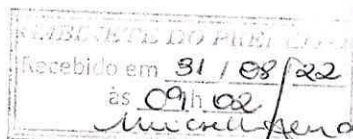 GABINETE DO PREFEITO
Recebido em 31 / 08 / 22
às 09h 02